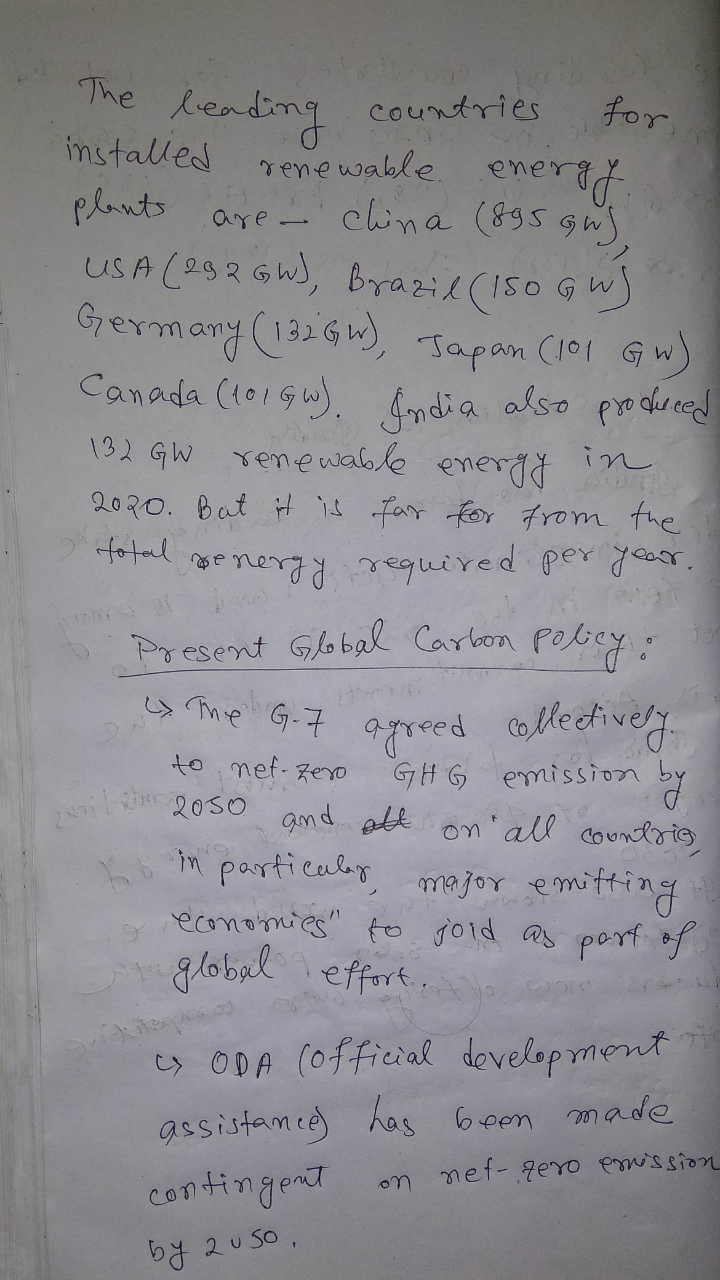 The leading countries for
installed renewable energy
plants are - China (895 GW),
USA (292 GW), Brazil (150 GW)
Germany (132 GW), Japan (101 GW)
Canada (101 GW). India also produced
132 GW renewable energy in
2020. But it is far for from the
total energy required per year.
Present Global Carbon Policy:
↳ The G-7 agreed collectively
to net-zero GHG emission by
2050 and all on "all countries,
in particular, major emitting
economies" to joid as part of
global effort.
↳ ODA (official development
assistance) has been made
contingent on net-zero emission
by 2050.